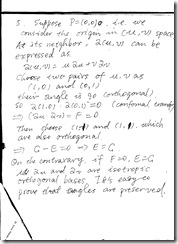 3. Suppose P=(0,0). i.e. we
consider the origin in (u,v) space
At its neighbor, z(u,v) can be
expressed as
z(u,v) = u zu + v zv
Choose two pairs of u.v as
(1,0) and (0,1)
their angle is 90 (orthogonal)
so z(1,0) · z(0,1)=0 (conformal
⇒ (zu · zv) = F = 0
Then choose and (1,1). which
are also orthogonal
⇒ G-E=0 ⇒ E=G
On the contrary, if F=0, E=G
zu and zv are isotropic
orthogonal bases. It's easy to
prove that angles are preserved.